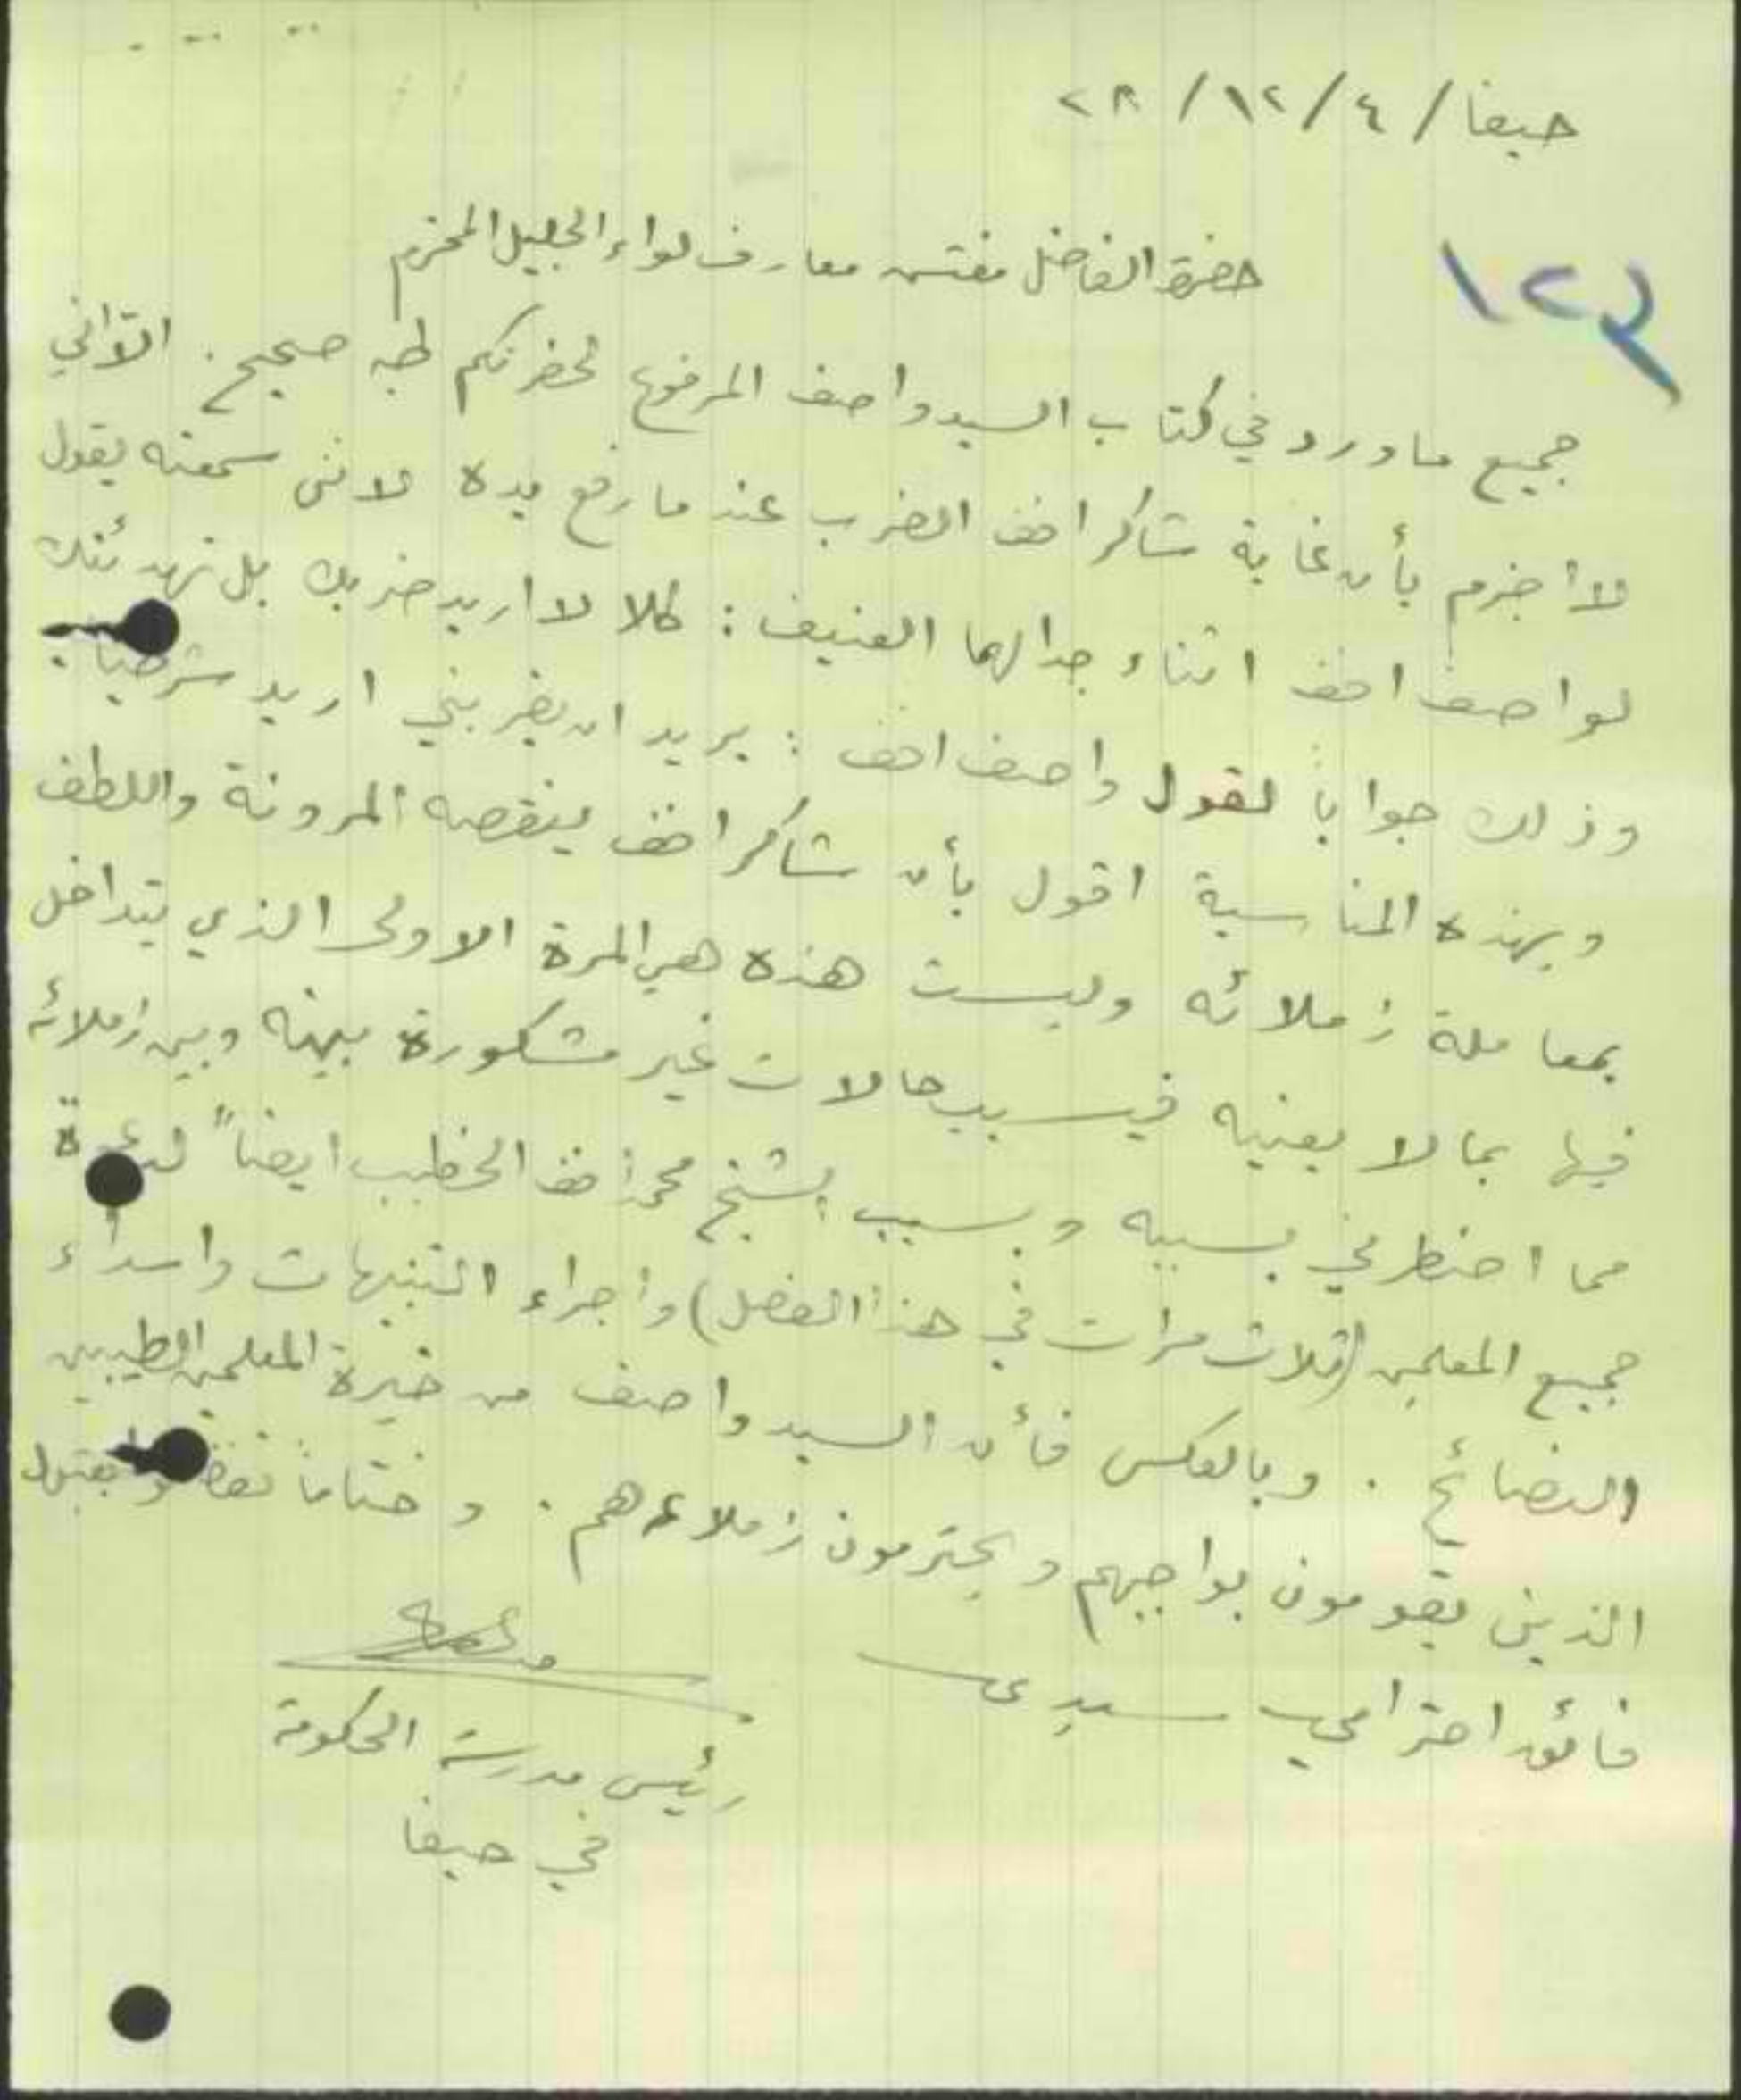 حيفا / ٤ / ١٢ / ٢٨
١٢٢
حضرة الفاضل مفتش معارف لواء الجليل المحترم
جميع ما ورد في كتاب السيد واصف المرفوع لحضرتكم طيه صحيح . الا اني
لا أجزم بأن غاية شاكر افند الضرب عند ما رفع يده لانني سمعته يقول
لواصف افند اثناء جدالهما العنيف : كلا لا اريد ضربك بل تهدئتك
وذلك جواباً لقول واصف افند : يريد ان يضربني اريد شرطيا
وبهذه المناسبة اقول بأن شاكر افند ينقصه المرونة واللطف
بمعاملة زملائه وليست هذه هي المرة الاولى الذي يتداخل
فيها بما لا يعنيه فيسبب حالات غير مشكورة بينه وبين زملائه
مما اضطرني بسببه وبسبب الشيخ محمد افند الخطيب ايضاً لدعوة
جميع المعلمين (ثلاث مرات في هذا الفصل) واجراء التنبيهات واسداء
النصائح . وبالعكس فأن السيد واصف من خيرة المعلمين الطيبين
الذين يقومون بواجبهم ويحترمون زملاءهم . وختاماً تفضلوا بقبول
فائق احترامي سيدي
رئيس مدرسة الحكومة
في حيفا